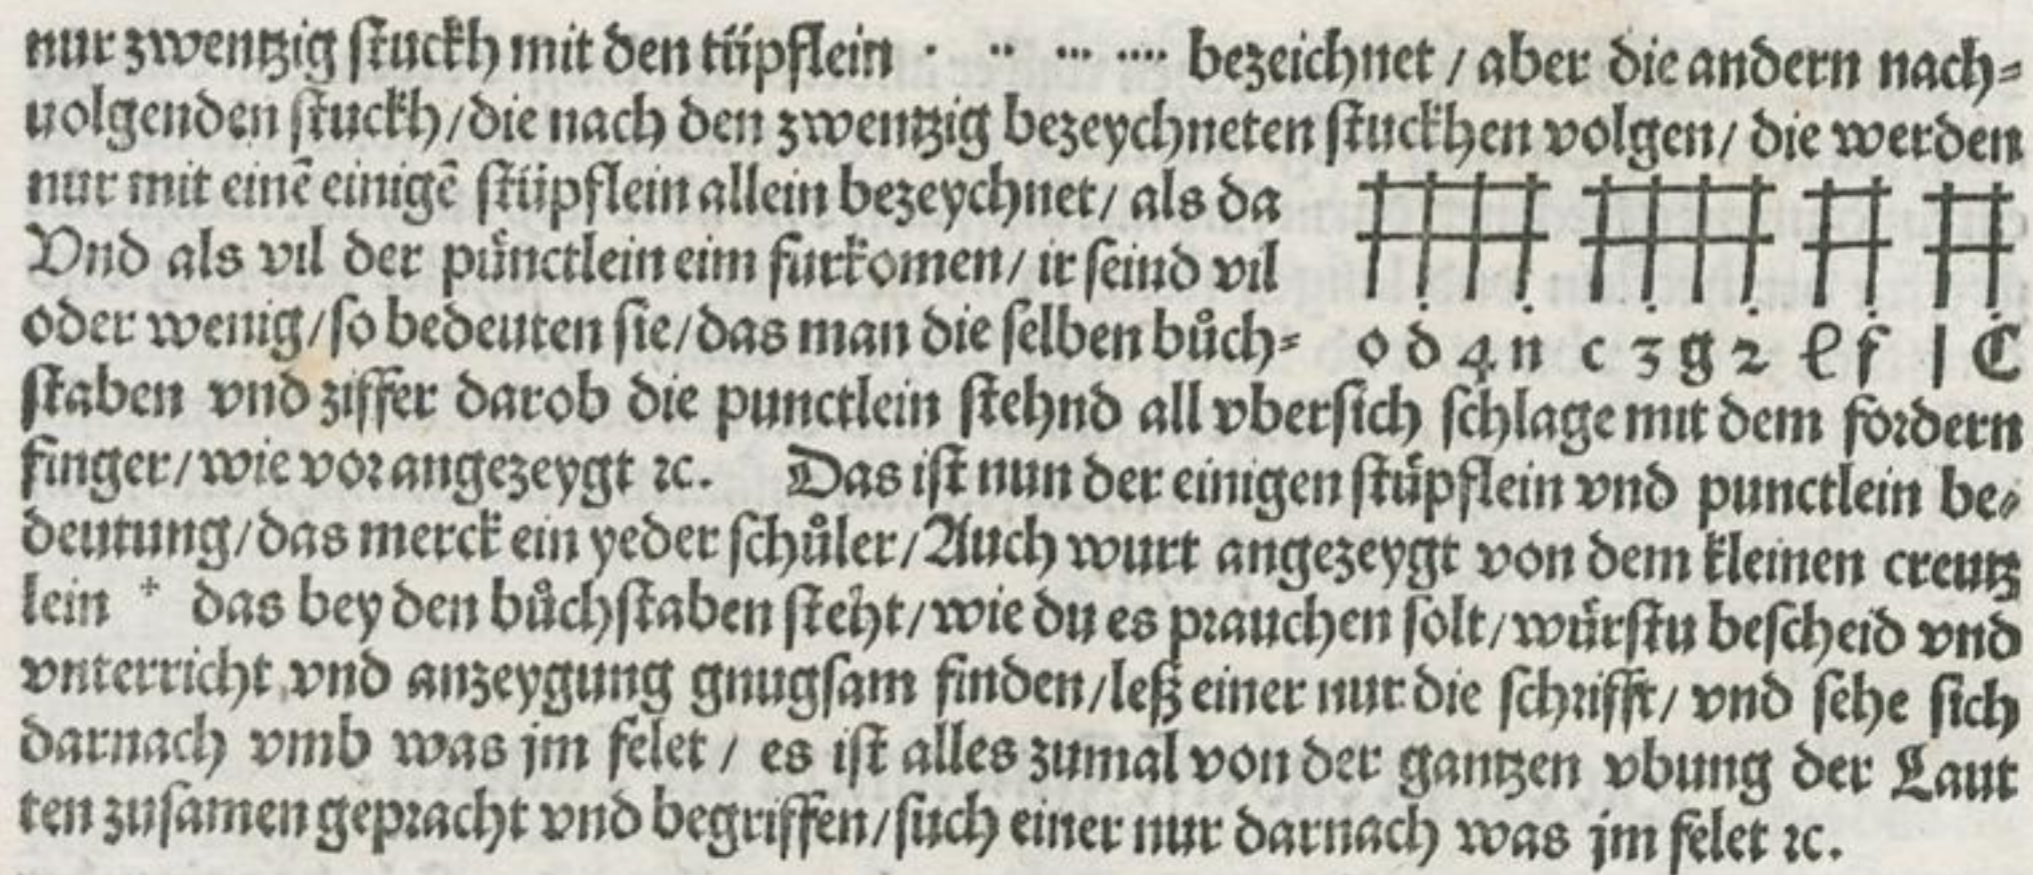 nur zwentzig ſtuckh mit den tüpflein · ·· ··· ···· bezeichnet / aber die andern nach⸗
uolgenden ſtuckh/die nach den zwentzig bezeychneten ſtuckhen volgen/ die werden
nur mit einē einigē ſtüpflein allein bezeychnet/ als da
Vnd als vil der puͤnctlein eim furkomen/ ir ſeind vil
oder wenig/ſo bedeuten ſie/das man die ſelben buͦch⸗ o d 4 n c 3 g 2 e f l C
ſtaben vnd ziffer darob die punctlein ſtehnd all vberſich ſchlage mit dem foꝛdern
finger/wie voꝛ angezeygt ꝛc. Das iſt nun der einigen ſtuͤpflein vnd punctlein be⸗
deutung/das merck ein yeder ſchuͦler/Auch wurt angezeygt von dem kleinen creutz
lein + das bey den buͦchſtaben ſteht/wie du es pꝛauchen ſolt/wuͤrſtu beſcheid vnd
vnterricht,vnd anzeygung gnugſam finden/leß einer nur die ſchꝛifft/ vnd ſehe ſich
darnach vmb was jm felet / es iſt alles zumal von der gantzen vbung der Laut
ten zuſamen gepꝛacht vnd begriffen/ſuch einer nur darnach was jm felet ꝛc.